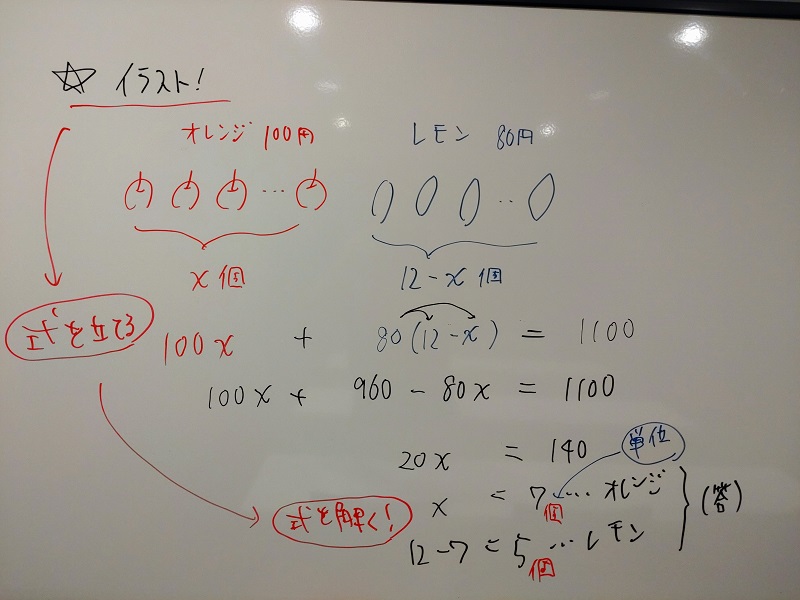 ☆ イラスト!
オレンジ 100円 レモン 80円
x個 12-x個
式を立てる
100x + 80(12-x) = 1100
100x + 960 - 80x = 1100
20x = 140
単位
x = 7個 … オレンジ
式を解く!
12-7 = 5個 … レモン
(答)